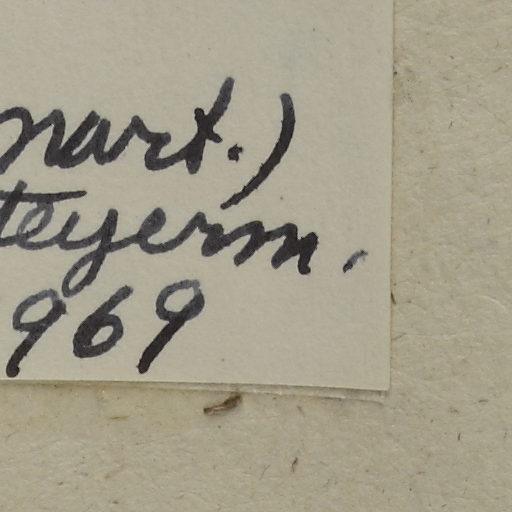 mart.)
teyerm.
969